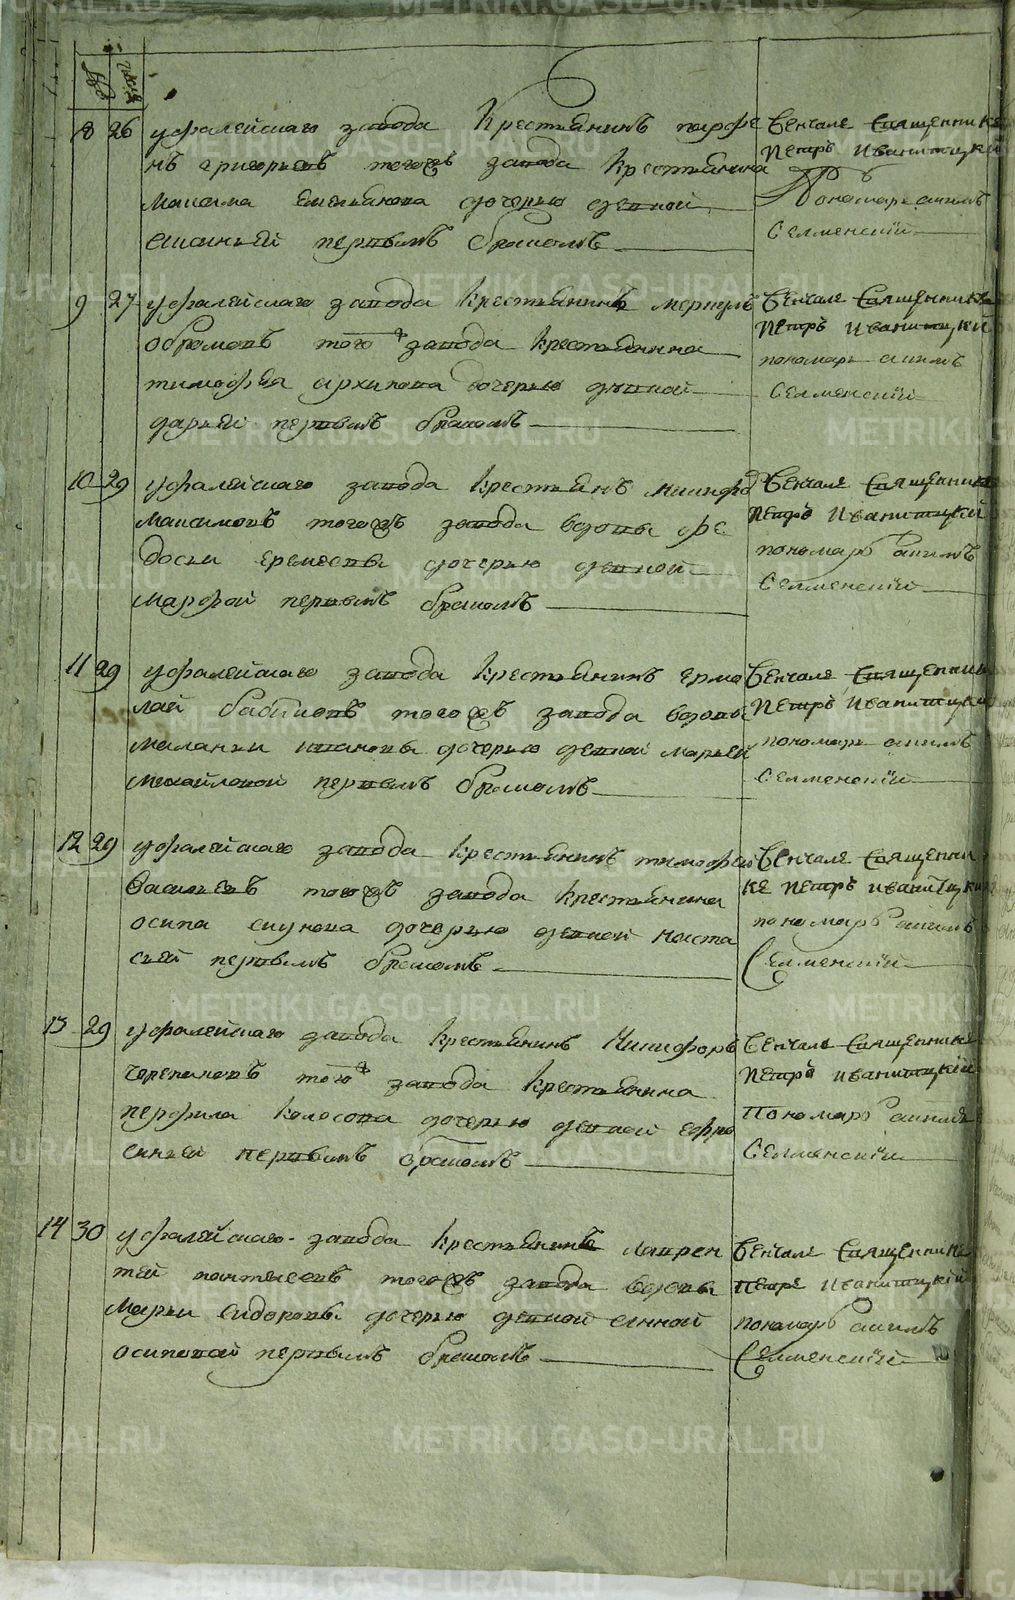 8 26 уфалейскаго завода Крестьянинъ парфе
нъ григорьевъ тогожъ завода Крестьянина
максима емельянова дочерью девкой
ксиньей первымъ бракомъ
Венчале Священникъ
Петръ Иваницкий
Пономарь акимъ
Селменский
9 27 уфалейскаго завода Крестьянинъ меркулъ
обрамовъ того ж завода Крестьянина
тимофея архипова дочерью девкой
дарьей первымъ бракомъ
Венчале Священникъ
Петръ Иваницкий
пономарь акимъ
Селменский
10 29 уфалейскаго завода Крестьянъ никифо
максимовъ тогожъ завода вдовы фе
досьи дочерью девкой
марфой первымъ бракомъ
Венчале Священникъ
Петръ Иваницкий
пономарь акимъ
Селменский
11 29 уфалейскаго завода Крестьянинъ ермо
лай тогожъ завода вдовы
маланьи ивановы дочерью девкой марьей
михайловой первымъ бракомъ
Венчале Священник
Петръ Иваницкий
пономарь акимъ
Селменский
12 29 уфалейскаго завода Крестьянинъ тимофей
Васильевъ тогожъ завода Крестьянина
осипа дочерью девкой наста
сией первымъ бракомъ
Венчале Священни
ке Петръ Иваницкий
пономарь акимъ
Селменский
13 29 уфалейскаго завода Крестьянинъ Никифоръ
черепановъ того ж завода Крестьянина
перфила Колосова дочерью девкой Ефро
синьей первымъ бракомъ
Венчале Священникъ
Петръ Иваницкий
Пономарь акимъ
Селменский
14 30 уфалейскаго завода Крестьянинъ лаврен
тей пантелеевъ тогожъ завода вдовы
марьи сидоровы дочерью девкой анной
осиповой первымъ бракомъ
Венчале Священникъ
Петръ Иваницкий
пономарь акимъ
Селменский
METRIKI.GASO-URAL.RU